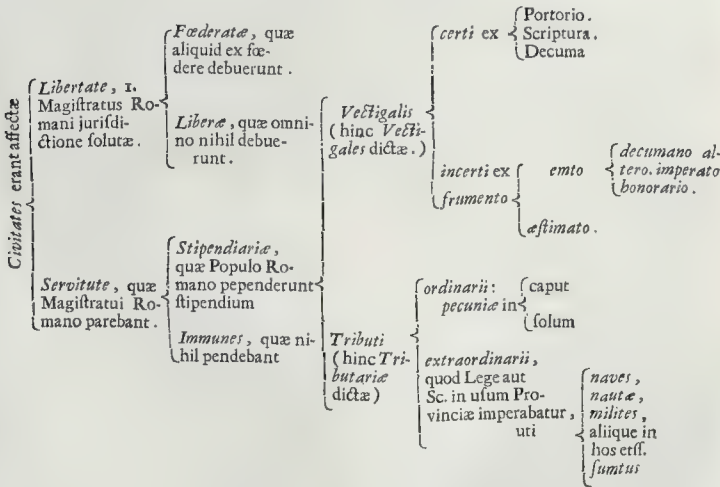 Civitates erant affectæ
Libertate, 1.
Magiſtratus Ro-
mani juriſdi-
ctione ſolutæ.
Fœderatæ, quæ
aliquid ex fœ-
dere debuerunt.
Liberæ, quæ omni-
no nihil debue-
runt.
Servitute, quæ
Magiſtratui Ro-
mano parebant.
Stipendiariæ,
quæ Populo Ro-
mano pependerunt
ſtipendium
Immunes, quæ ni-
hil pendebant
Vectigalis
(hinc Vecti-
gales dictæ.)
certi ex
Portorio.
Scriptura.
Decuma
incerti ex
frumento
emto
decumano al-
tero. imperato
honorario.
æſtimato.
Tributi
(hinc Tri-
butariæ
dictæ)
ordinarii:
pecuniæ in
caput
ſolum
extraordinarii,
quod Lege aut
Sc. in uſum Pro-
vinciæ imperabatur,
uti
naves,
nautæ,
milites,
aliique in
hos etſſ.
ſumtus